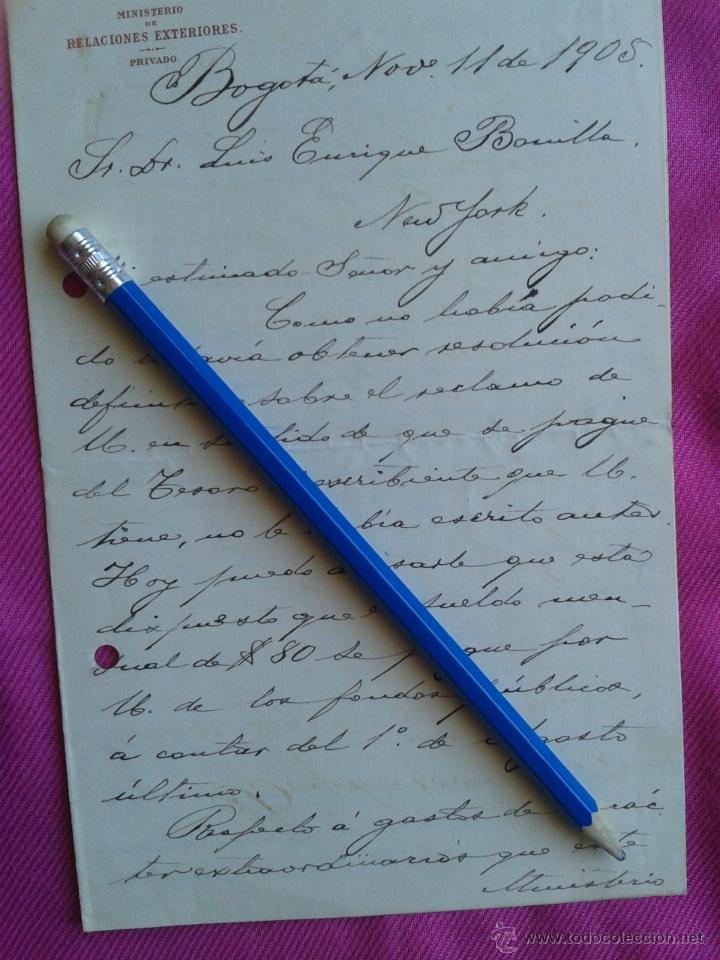 MINISTERIO
DE
RELACIONES EXTERIORES.
PRIVADO.
Bogotá, Nove. 11 de 1905.
Sr. Dr. Luis Enrique Bonilla.
New York.
estimado Señor y amigo:
Como no había podi-
do obtener resolución
sobre el reclamo de
U. en de que se pague
del Tesoro escribiente que U.
tiene, no le escrito antes.
Hoy puedo que está
dispuesto que sueldo men-
sual de $80 se por
U. de los fondos públicos,
á contar del 1º. de
último.
Respecto á gastos de
ter extraordinarios que este
Ministerio
www.todocoleccion.net